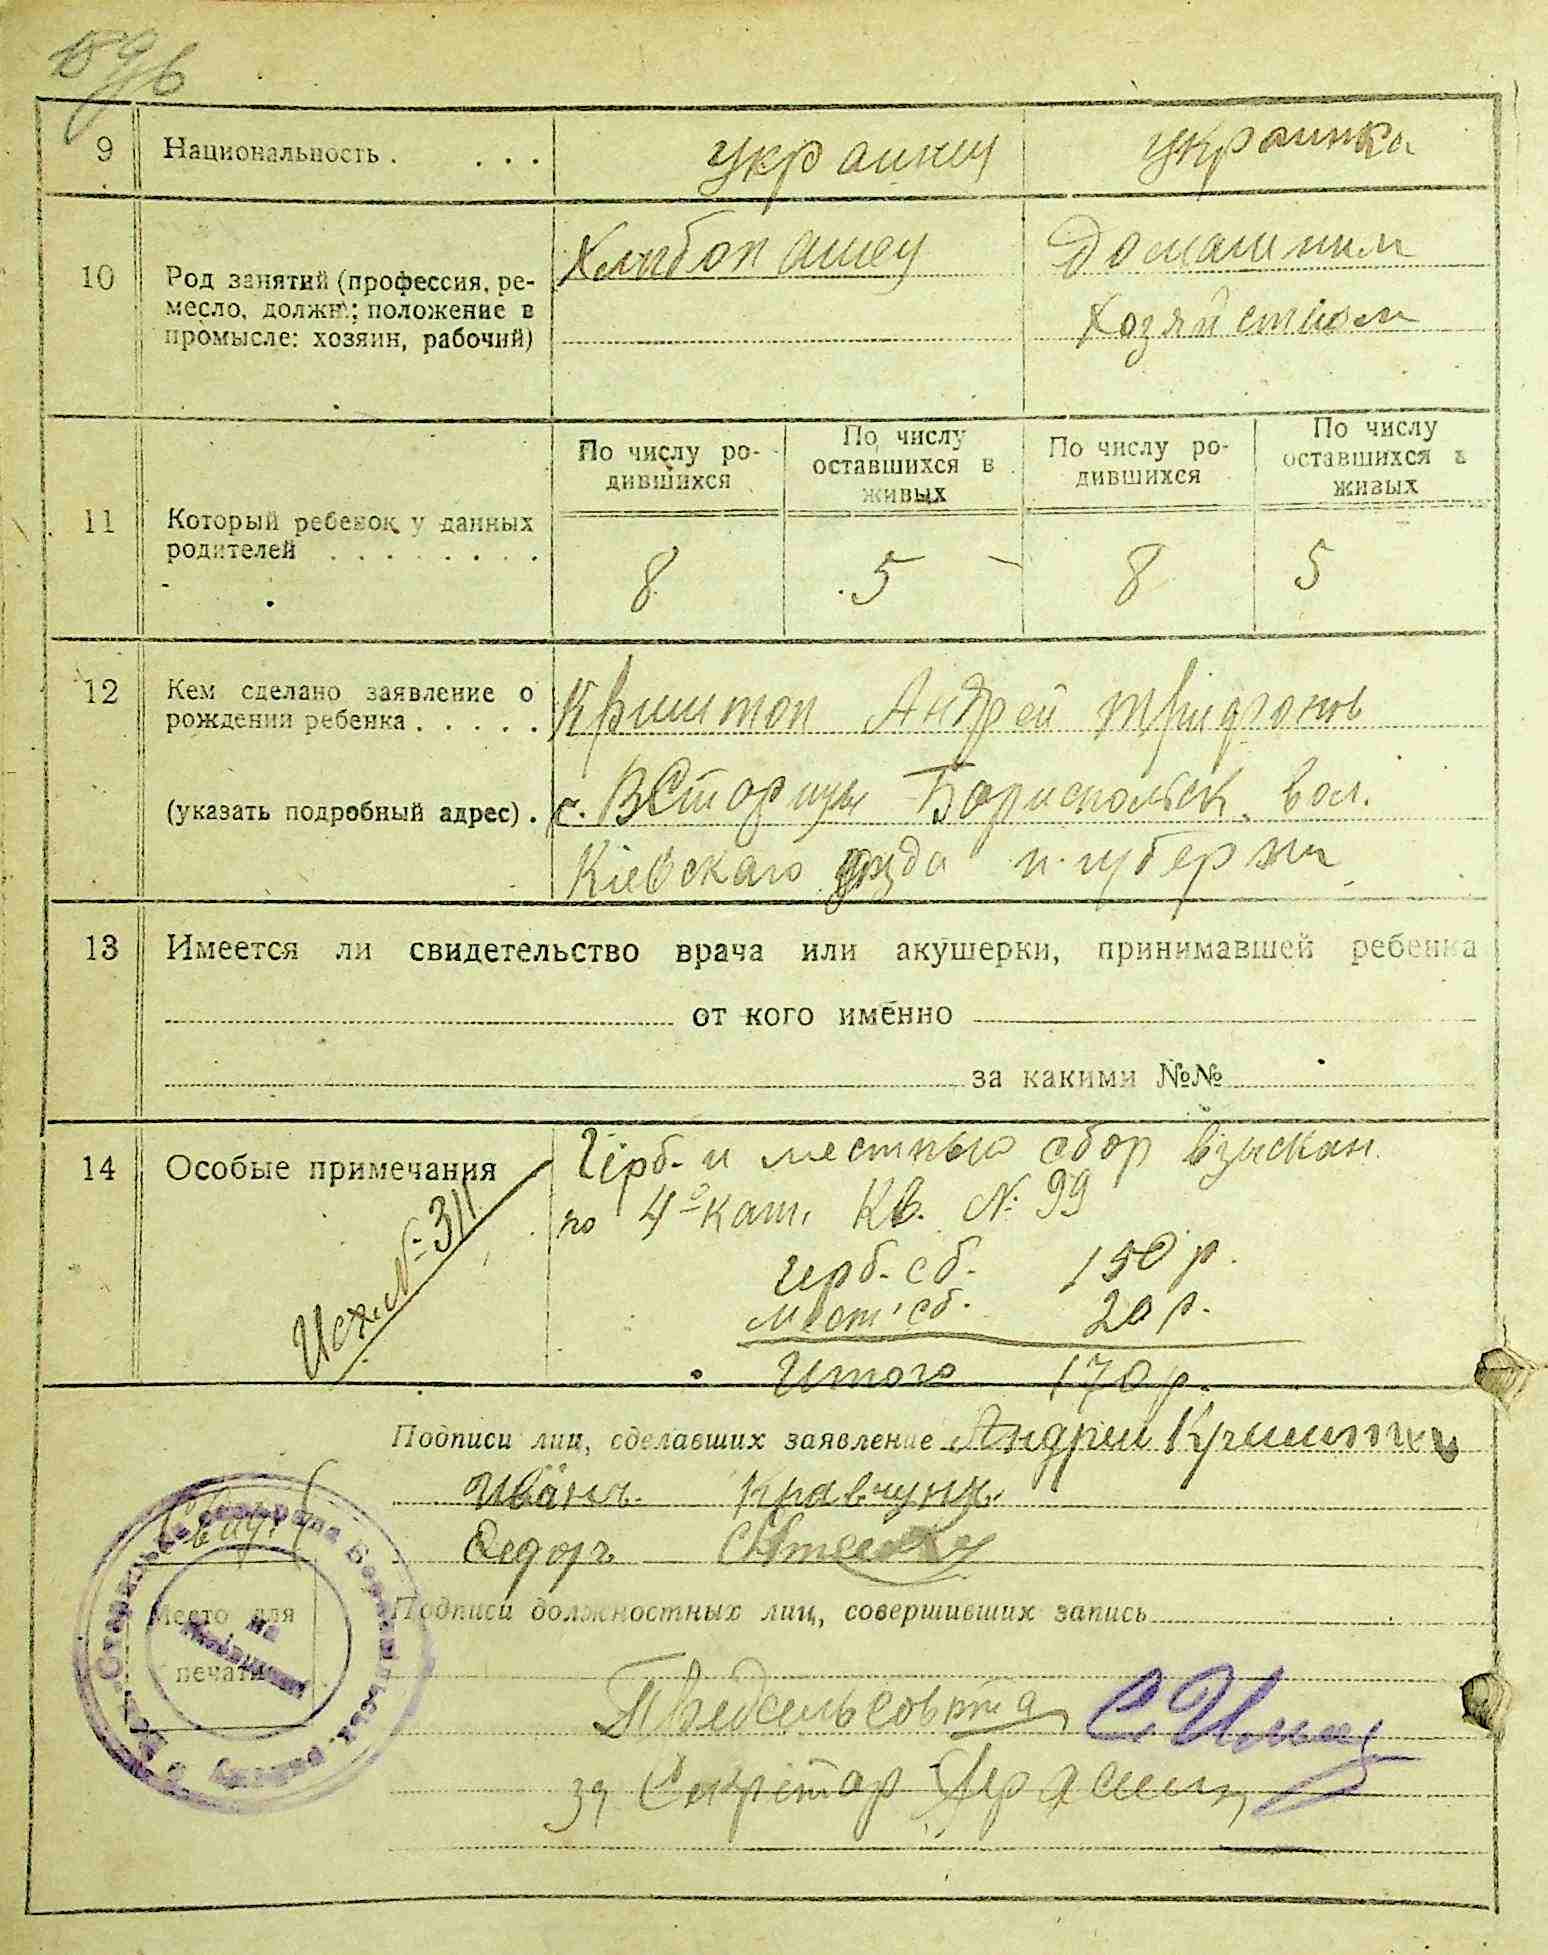 9 Национальность . . . . украинец украинка
10 Род занятий (профессия, ре-
месло, должн.; положение в
промысле: хозяин, рабочий)
Хлибопашец
Домашним
Хозяйством
11 Который ребенок у данных
родителей . . . . . . . .
По числу ро-
дившихся
По числу
оставшихся в
живых
По числу ро-
дившихся
По числу
оставшихся в
живых
8 5 8 5
12 Кем сделано заявление о
рождении ребенка . . . . .
(указать подробный адрес) .
Криштоп Андрей Трифонов
с. В Старицы Бориспольск. вол.
Кіевскаго уезда и губернии
13 Имеется ли свидетельство врача или акушерки, принимавшей ребенка
от кого именно
за какими №№
14 Особые примечания
Исх. № 311
Герб. и местный сбор взыскан
по 4й кат. Кв. № 99
Герб. сб. 150 р.
Мест. сб. 20 р.
Итого 170 р.
Подписи лиц, сделавших заявление Андрей Криштоп
Иван Кравчунъ
Федоръ
Подписи должностных лиц, совершивших запись
Место для
печати
Предсельсовета
за Секретар